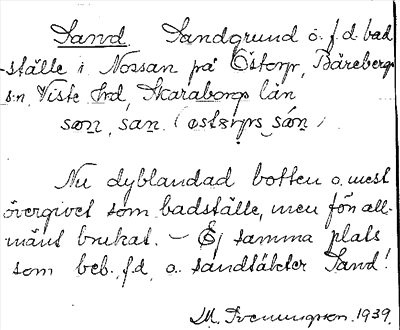 Sand. Sandgrund o. f.d. bad
-ställe i Nossan på Österp, Bäreberg
s:n, Viste hrd, Skaraborgs län
sɑn, san. (östɑrps sán).
Nu dyblandad botten o. mest
övergivet som badställe, men förr all-
mänt brukat. – Ej samma plats
som beb., f.d. o. sandtäkter Sand!
M. Svenungson. 1939.